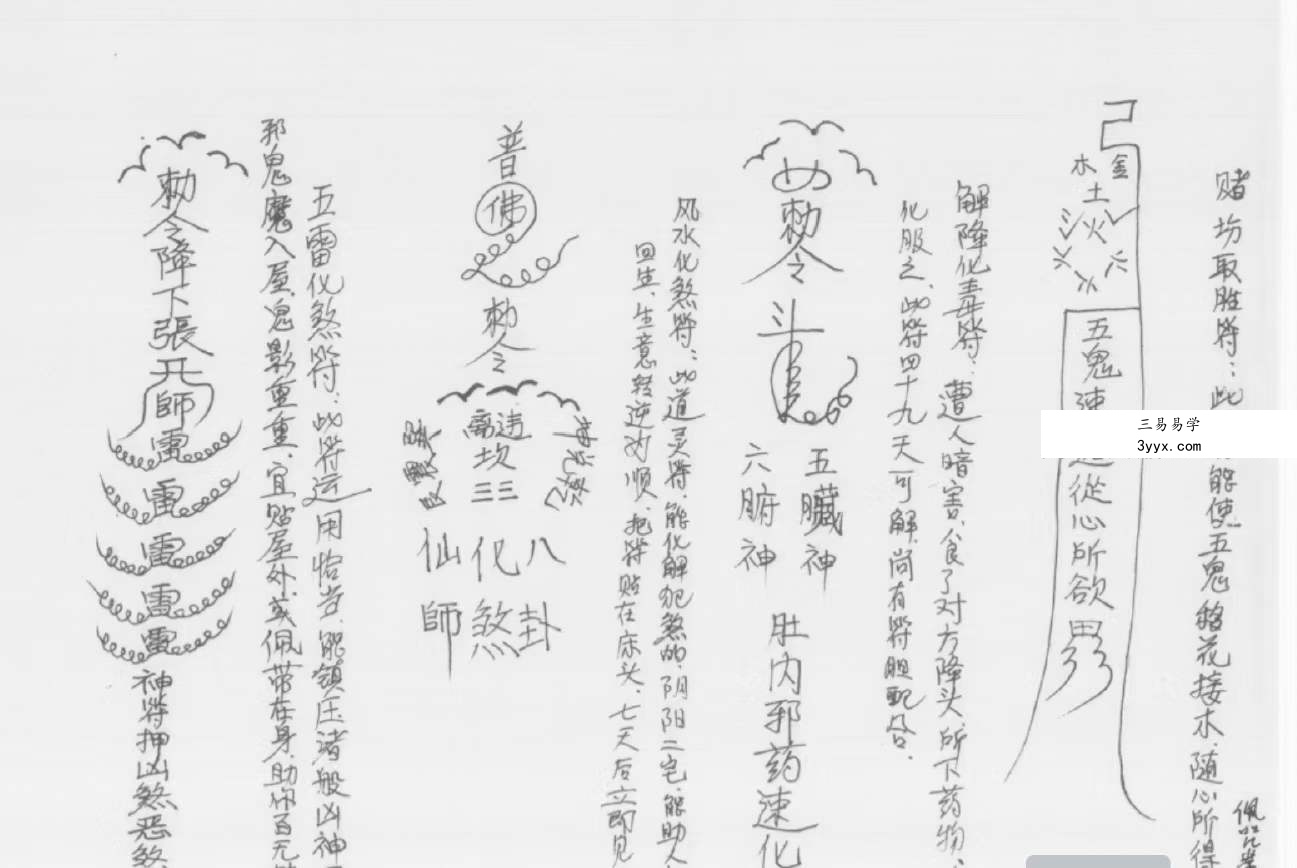 赌坊取胜符：此
能使五鬼移花接木、随心所得
佩
金
木
土
火
五鬼速
從心所欲
解降化毒符：遭人暗害、食了对方降头、所下药物、
化服之、此符四十九天可解、尚有符胆配合.
勅令
斗
五臟神
六腑神
肚内邪药速化
风水化煞符：此道灵符、能化解犯煞的、阴阳二宅、能助人
回生、生意转逆为顺、把符贴在床头、七天后立即见
普
佛
勅令
離
坎
八卦
化煞
仙師
五雷化煞符：此符运用恰当、能镇压诸般凶神
邪鬼魔入屋、鬼影重重、宜贴屋外、或佩带在身、助你百无
勅令降下張天師
雷
雷
雷
雷
雷
神符押凶煞恶煞
三易易学
3yyx.com